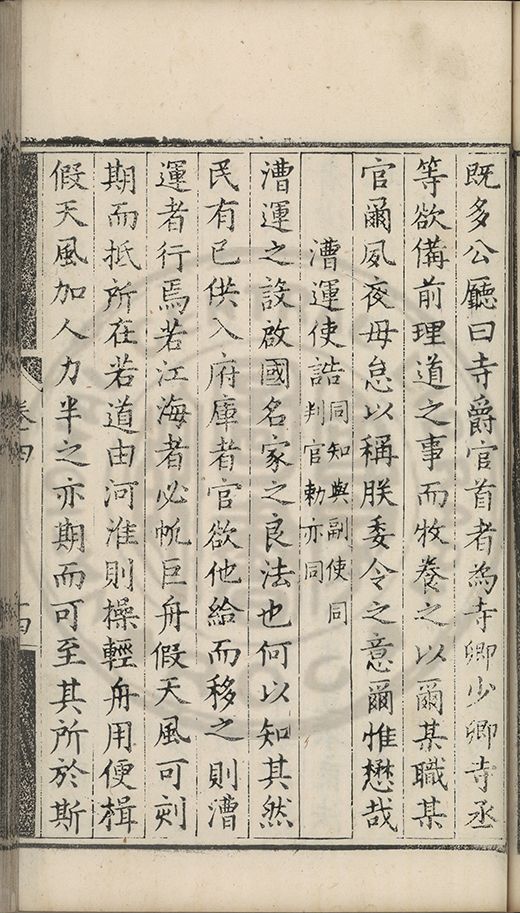 既多公廳曰寺爵官首者為寺卿少卿寺丞
等欲備前理道之事而牧養之以爾某職某
官爾夙夜毋怠以稱朕委令之意爾惟懋哉
漕運使誥同知與副使同判官勅亦同
漕運之設啟國名家之良法也何以知其然
民有已供入府庫者官欲他給而移之則漕
運者行焉若江海者必帆巨舟假天風可刻
期而抵所在若道由河淮則操輕舟用便楫
假天風加人力半之亦期而可至其所於斯
卷四
十四